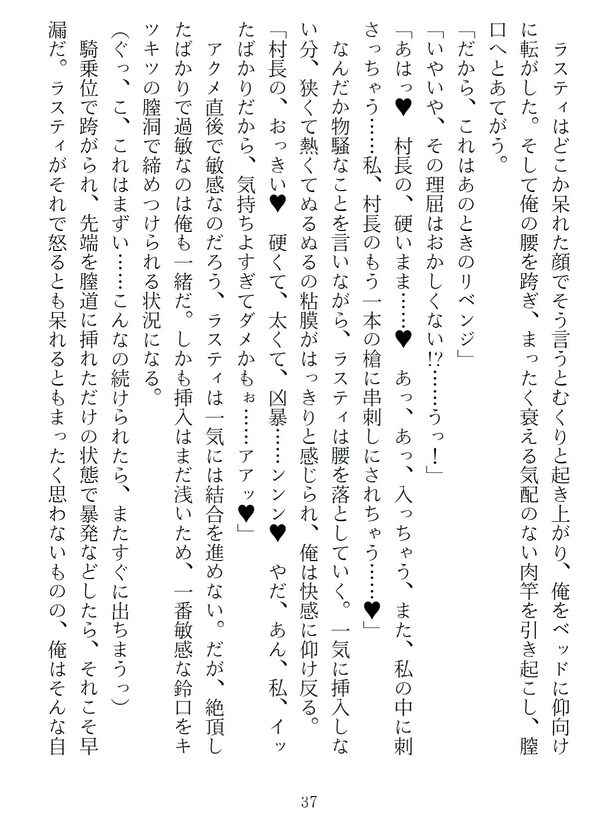 ラスティはどこか呆れた顔でそう言うとむくりと起き上がり、俺をベッドに仰向け
に転がした。そして俺の腰を跨ぎ、まったく衰える気配のない肉竿を引き起こし、膣
口へとあてがう。
「だから、これはあのときのリベンジ」
「いやいや、その理屈はおかしくない!?……うっ！」
「あはっ♥　村長の、硬いまま……♥　あっ、あっ、入っちゃう、また、私の中に刺
さっちゃう……私、村長のもう一本の槍に串刺しにされちゃう……♥」
　なんだか物騒なことを言いながら、ラスティは腰を落としていく。一気に挿入しな
い分、狭くて熱くてぬるぬるの粘膜がはっきりと感じられ、俺は快感に仰け反る。
「村長の、おっきい♥　硬くて、太くて、凶暴……ンンン♥　やだ、あん、私、イッ
たばかりだから、気持ちよすぎてダメかもぉ……アアッ♥」
　アクメ直後で敏感なのだろう、ラスティは一気には結合を進めない。だが、絶頂し
たばかりで過敏なのは俺も一緒だ。しかも挿入はまだ浅いため、一番敏感な鈴口をキ
ツキツの膣洞で締めつけられる状況になる。
（ぐっ、こ、これはまずい……こんなの続けられたら、またすぐに出ちまうっ）
　騎乗位で跨がられ、先端を膣道に挿れただけの状態で暴発などしたら、それこそ早
漏だ。ラスティがそれで怒るとも呆れるともまったく思わないものの、俺はそんな自
37